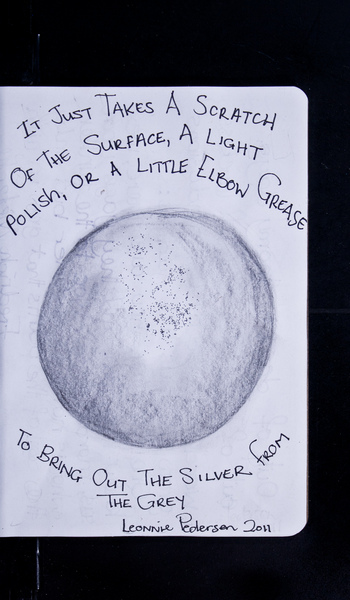 It Just Takes A Scratch
Of The Surface, A Light
Polish, or a Little Elbow Grease
To Bring Out The Silver from
The Grey
Leonnie Pedersen 2011